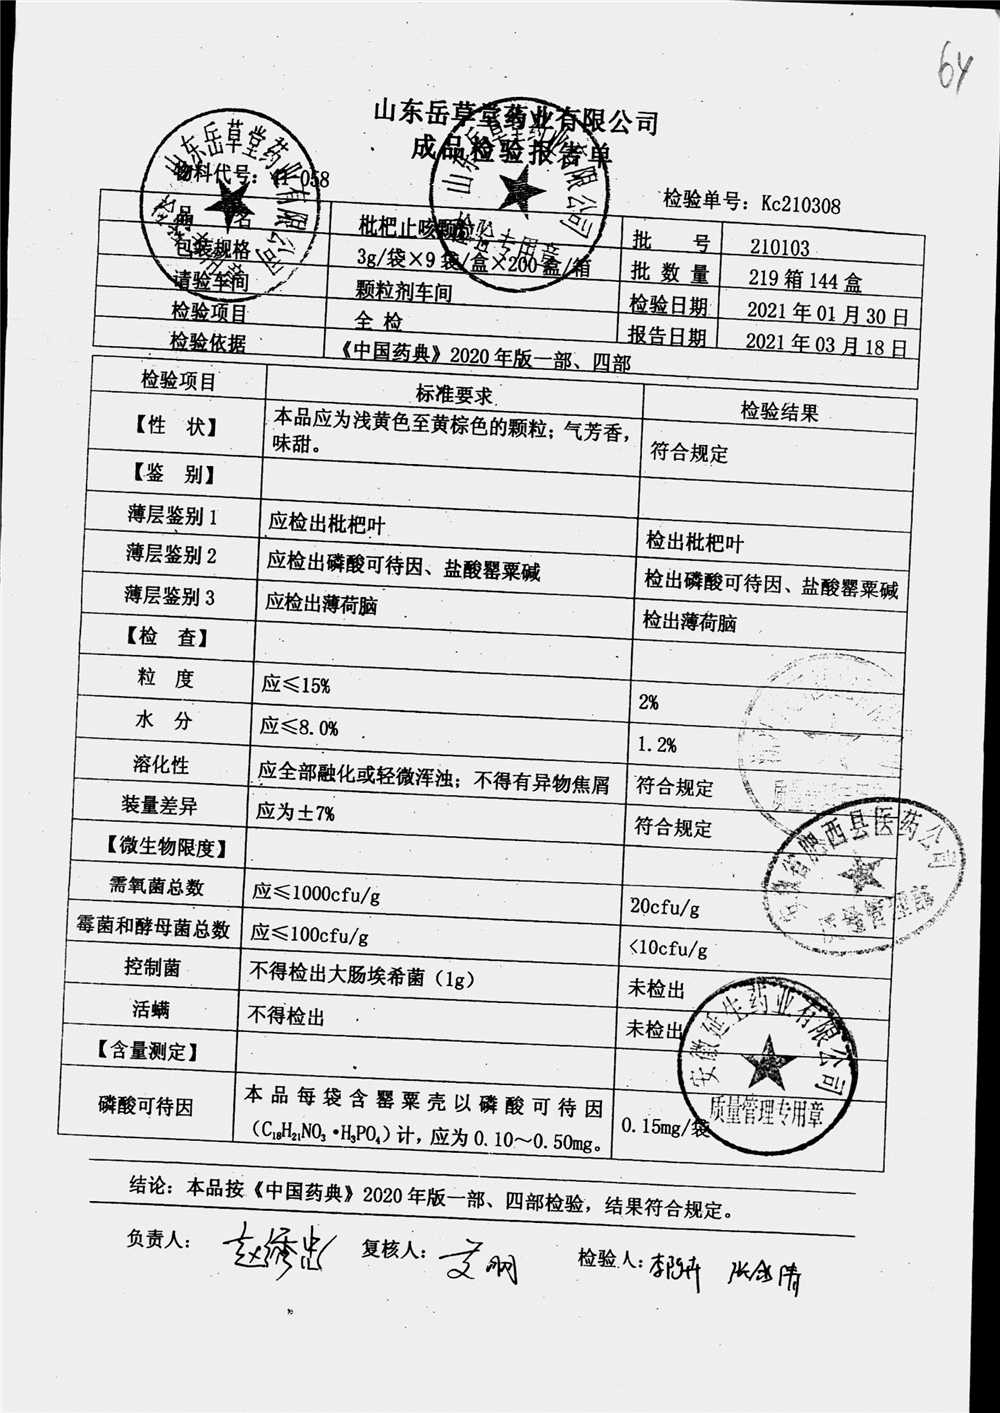 64
山东岳草堂药业有限公司
成品检验报告单
物料代号: 058
检验单号：Kc210308
品 名 枇杷止咳颗粒 批 号 210103
包装规格 3g/袋×9袋/盒×200盒/箱 批数量 219箱144盒
请验车间 颗粒剂车间 检验日期 2021年01月30日
检验项目 全检 报告日期 2021年03月18日
检验依据 《中国药典》2020年版一部、四部
检验项目 标准要求 检验结果
【性 状】 本品应为浅黄色至黄棕色的颗粒；气芳香，
味甜。 符合规定
【鉴 别】
薄层鉴别1 应检出枇杷叶 检出枇杷叶
薄层鉴别2 应检出磷酸可待因、盐酸罂粟碱 检出磷酸可待因、盐酸罂粟碱
薄层鉴别3 应检出薄荷脑 检出薄荷脑
【检 查】
粒 度 应≤15% 2%
水 分 应≤8.0% 1.2%
溶化性 应全部融化或轻微浑浊；不得有异物焦屑 符合规定
装量差异 应为±7% 符合规定
【微生物限度】
需氧菌总数 应≤1000cfu/g 20cfu/g
霉菌和酵母菌总数 应≤100cfu/g <10cfu/g
控制菌 不得检出大肠埃希菌（1g） 未检出
活螨 不得检出 未检出
【含量测定】
磷酸可待因 本品每袋含罂粟壳以磷酸可待因
（C₁₈H₂₁NO₃·H₃PO₄）计，应为0.10～0.50mg。 0.15mg/袋
结论：本品按《中国药典》2020年版一部、四部检验，结果符合规定。
负责人： 复核人： 艾明 检验人：
山东岳草堂药业有限公司
山东岳草堂药业有限公司
检验专用章
安徽省肥西县医药公司
质量管理部
安徽延生药业有限公司
质量管理专用章